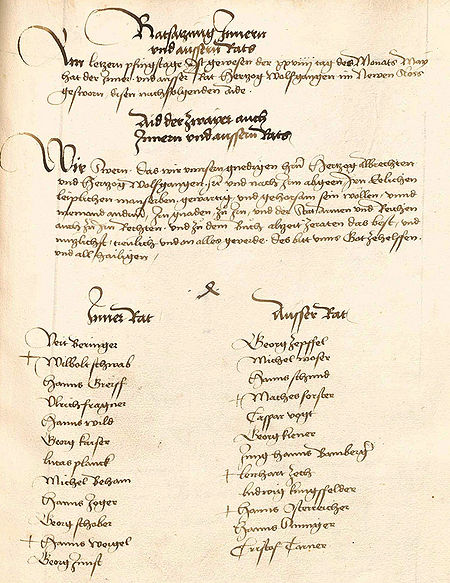 Ratsatzung Innern
und aussern Rats
Am letzern pfingstage Ist gewesen der xxviiij tag des Monats May
hat der Inner und ausser Rat Herzog Wolfgangen im Newen Slos
gesworn disen nachfolgenden aide.
Aid der zwaier auch
Innern und aussern Rats
Wir Swern, das wir unnserm gnedigen herrn Hertzog Albrechten
und Hertzog Wolfganngen, und nach Irm abgeen Irn Elichen
leiplichen manserben, gewärtig und gehorsam sein wollen, unnd
niemand anndrm, In gnaden zu In, und der Stat Armen und Reichen
auch zu Irn Rechten, und zu dem Buch alzeit zeraten das best, und
nutzlichist, treulich und on alles geverde. des bit unns Got zehelffen,
und all heiligen,
Inner Rat
Äusser Rat
Veit Beringer
† Wilbolt schwab
Hanns Greiff
Ulrich fragner
Hanns wild
Georg kaiser
lucas planck
Michel Beham
Hanns Zeger
Georg schober
† Hanns weigel
Georg Zunst
Georg Zepffel
Michel moser
Hanns schmid
† Mathes forster
Caspar vogt
Georg kiener
Jung Hanns Bamberger
† lenhart Zech
ludwig kungsfelder
† Hanns Osterreicher
Hanns Aninger
Cristof Carner